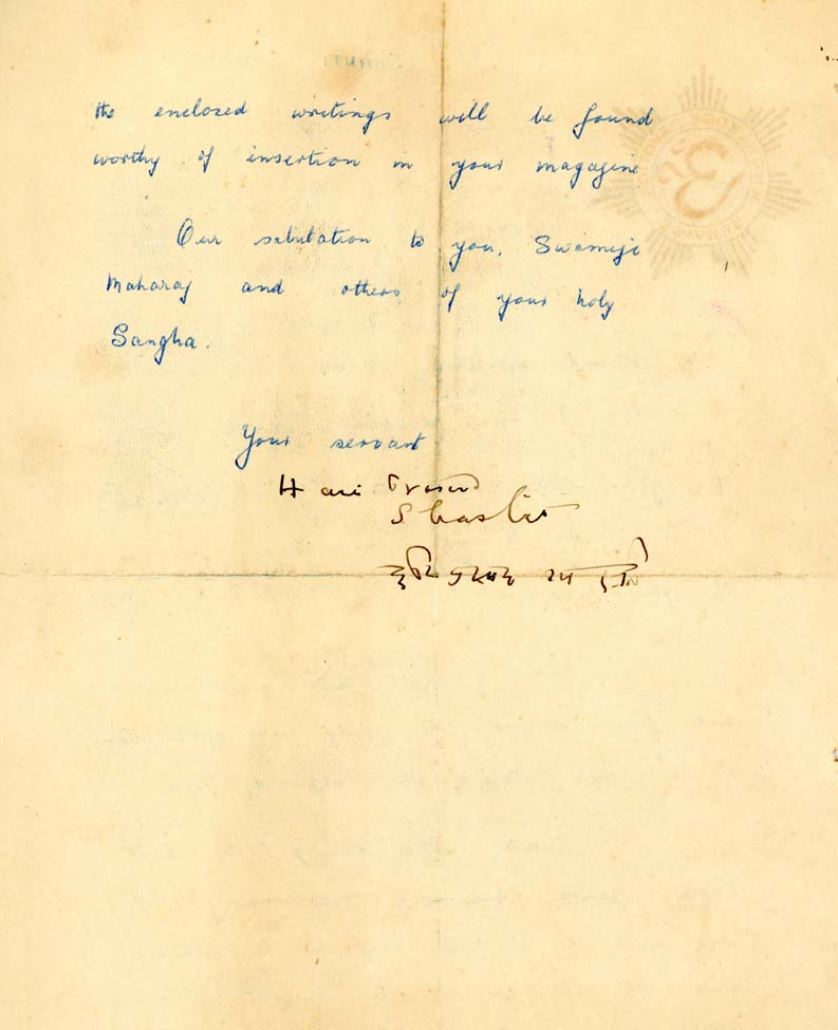 the enclosed writings will be found
worthy of insertion in your magazine
Our salutation to you, Swamiji
Maharaj and others of your holy
Sangha.
Your servant
Hari Prasad
Shastri
हरि प्रसाद शास्त्री